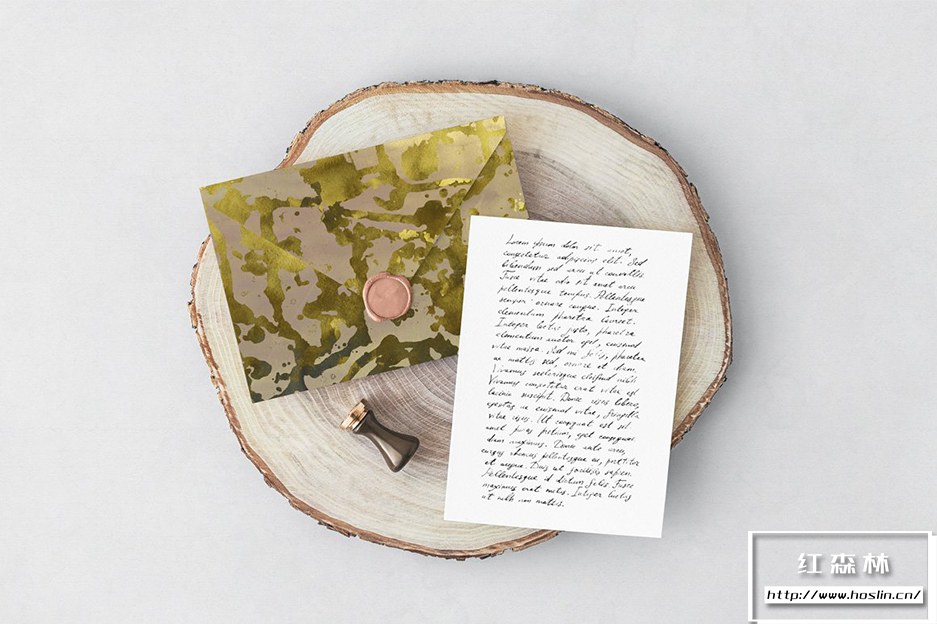 Lorem ipsum dolor sit amet,
consectetur adipiscing elit. Sed
bibendum sed arcu ut convallis.
Fusce vitae odio sit amet arcu
pellentesque tempus. Pellentesque
semper ornare congue. Integer
elementum pharetra laoreet.
Integer lectus justo, pharetra
elementum auctor eget, euismod
vitae massa. Sed mi felis, pharetra
ac mattis sed, ornare et diam.
Vivamus scelerisque eleifend nibh.
Vivamus consectetur erat vitae est
lacinia suscipit. Donec risus libero,
egestas ac euismod vitae, fringilla
vitae risus. Ut consequat est sit
amet purus pretium, eget congue
diam maximus. Donec ante arcu,
cursus rhoncus pellentesque eu, porttitor
et neque. Duis ut facilisis sapien.
Pellentesque id dictum felis. Fusce
maximus erat metus. Integer luctus
ut nibh non mattis.
红森林
http://www.hoslin.cn/